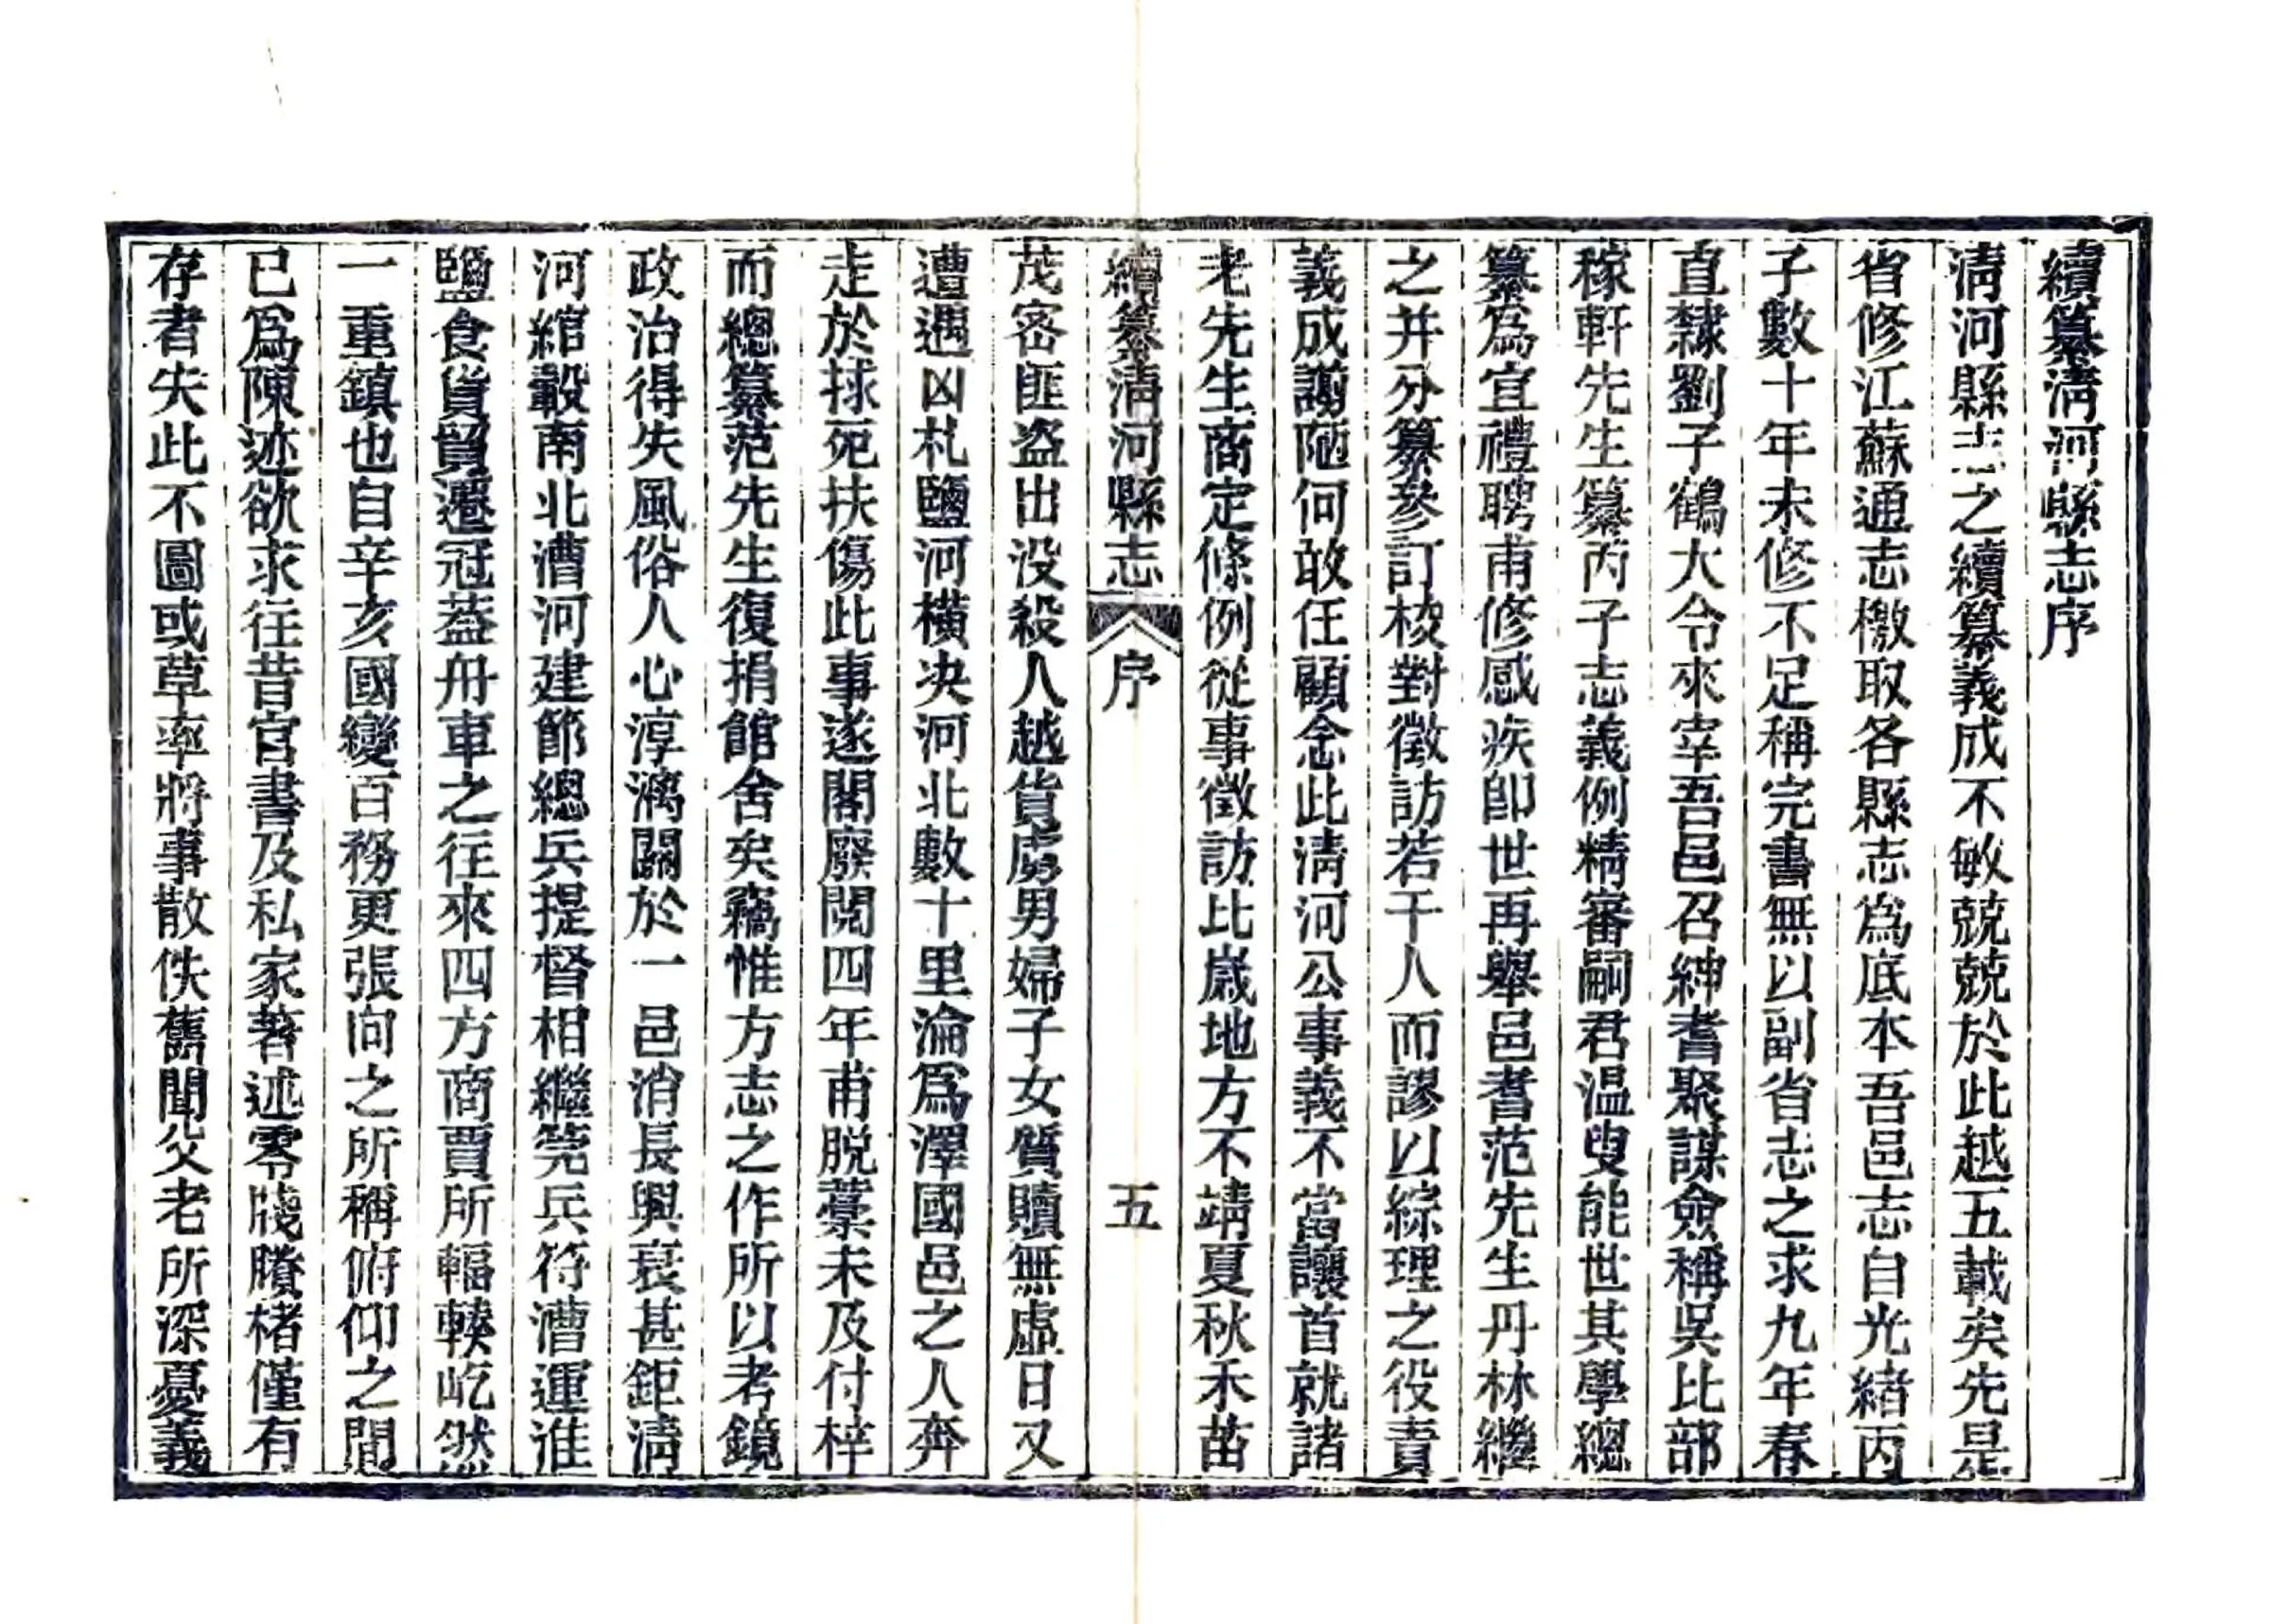 續纂清河縣志序
清河縣志之續纂義成不敏兢兢於此越五載矣先是
省修江蘇通志檄取各縣志為底本吾邑志自光緒丙
子數十年未修不足稱完書無以副省志之求九年春
直隸劉子鶴大令來宰吾邑召紳耆聚謀僉稱吳比部
稼軒先生纂丙子志義例精審嗣君温叟能世其學總
纂爲宜禮聘甫修感疾卽世再舉邑耆范先生丹林繼
之并分纂參訂校對徵訪若干人而謬以綜理之役責
義成譾陋何敢任顧念此清河公事義不當讓首就諸
老先生商定條例從事徵訪比歲地方不靖夏秋禾苗
續纂清河縣志 序 五
茂密匪盗出没殺人越貨虜男婦子女質贖無虛日又
遭遇凶札鹽河橫決河北數十里淪爲澤國邑之人奔
走於捄死扶傷此事遂閣廢閱四年甫脱藳未及付梓
而總纂范先生復捐館舍矣竊惟方志之作所以考鏡
政治得失風俗人心淳漓關於一邑消長興衰甚鉅清
河綰轂南北漕河建節總兵提督相繼筦兵符漕運淮
鹽食貨貿遷冠蓋舟車之往來四方商賈所輻輳屹然
一重鎮也自辛亥國變百務更張向之所稱俯仰之間
已爲陳迹欲求往昔官書及私家著述零牋賸楮僅有
存者失此不圖或草率將事散佚舊聞父老所深憂義